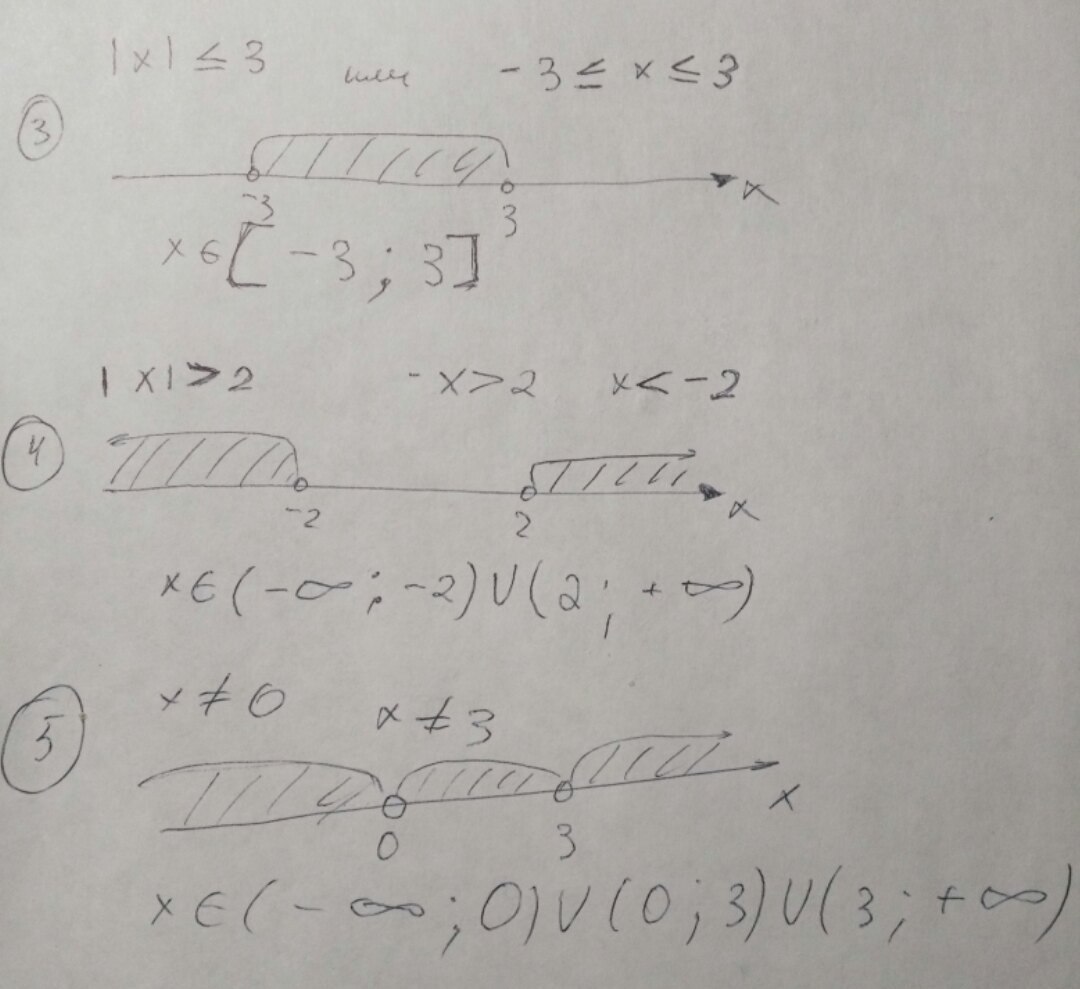 |x| ≤ 3 или -3 ≤ x ≤ 3
3
-3 3 x
x ∈ [-3; 3]
|x| > 2 -x > 2 x < -2
4
-2 2 x
x ∈ (-∞; -2) U (2; +∞)
x ≠ 0 x ≠ 3
5
0 3 x
x ∈ (-∞; 0) U (0; 3) U (3; +∞)